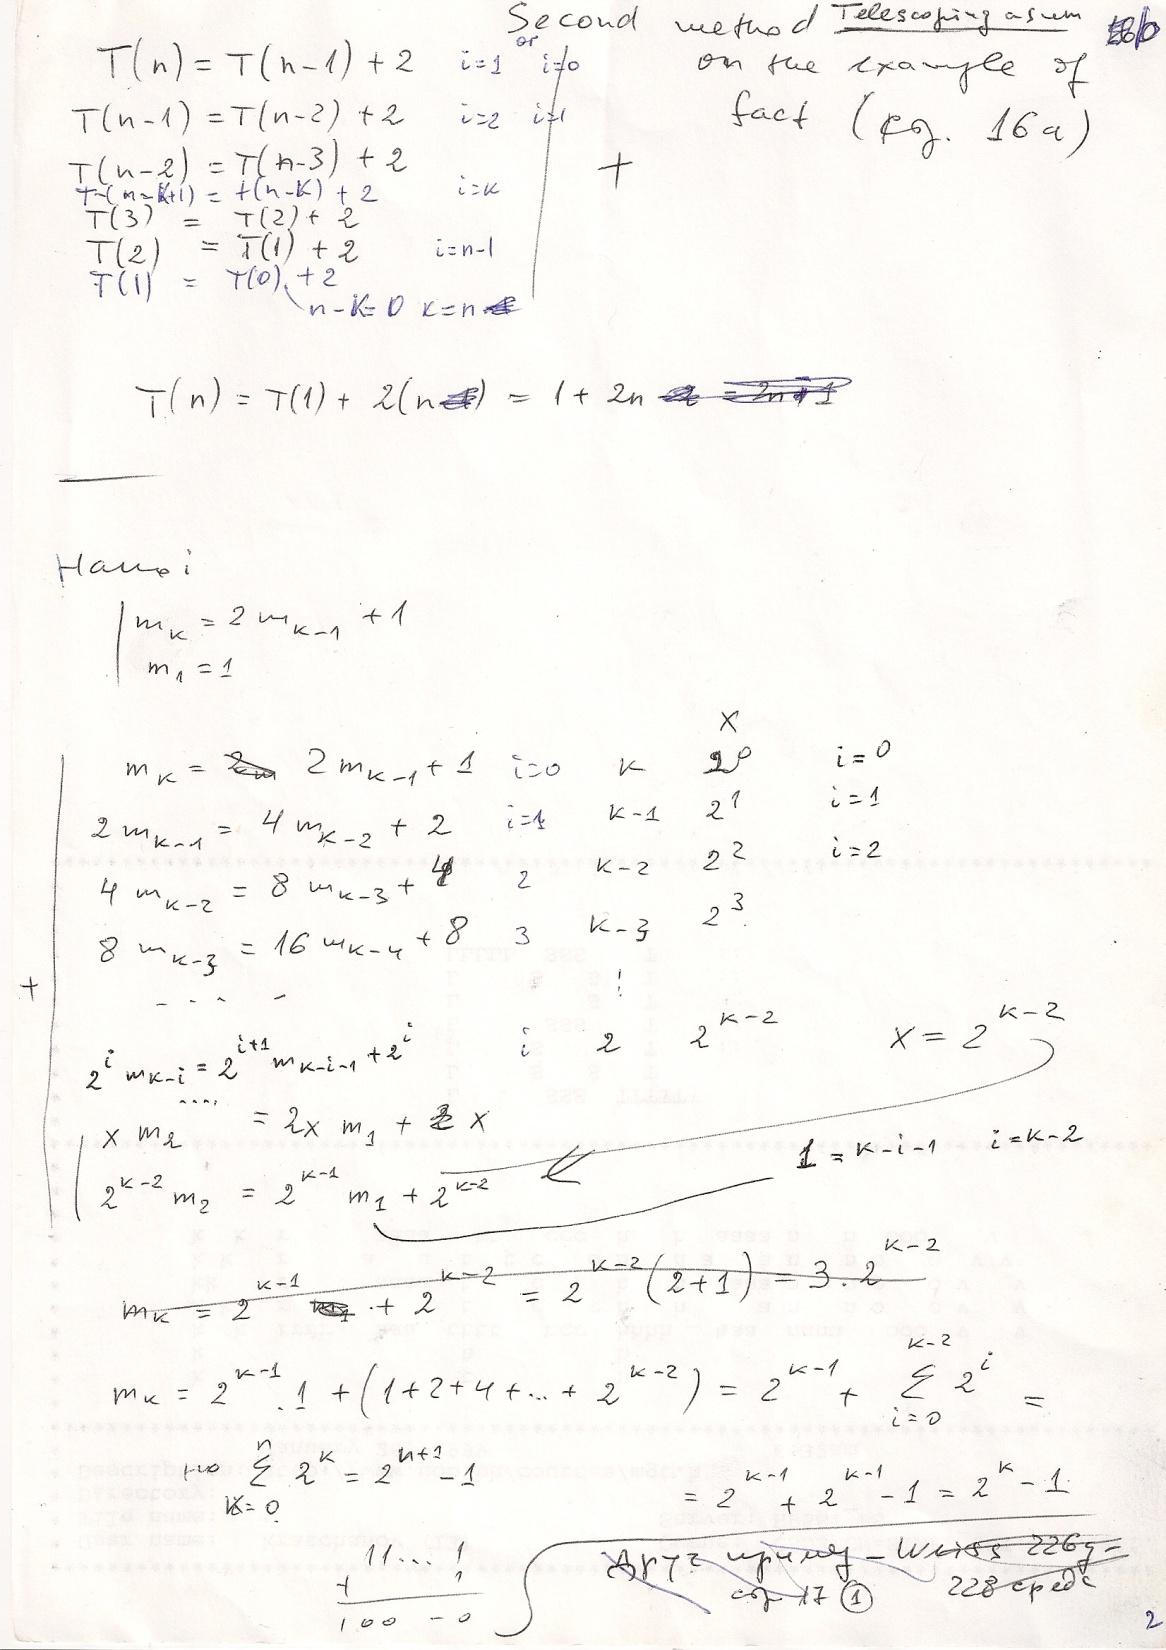 Second method Telescoping a sum
on the example of
fact ( 16a)
T(n) = T(n-1) + 2 i=1 or i=0
T(n-1) = T(n-2) + 2 i=2 i=1
T(n-2) = T(n-3) + 2
+
T(n-k+1) = T(n-k) + 2 i=k
T(3) = T(2) + 2
T(2) = T(1) + 2 i=n-1
T(1) = T(0) + 2
n-k=0 k=n
T(n) = T(1) + 2(n ) = 1 + 2n
Hanoi
m_k = 2m_{k-1} + 1
m_1 = 1
x
m_k = 2m_{k-1} + 1 i=0 k 2^0 i=0
2m_{k-1} = 4m_{k-2} + 2 i=1 k-1 2^1 i=1
4m_{k-2} = 8m_{k-3} + 4 2 k-2 2^2 i=2
8m_{k-3} = 16m_{k-4} + 8 3 k-3 2^3
+
....
2^i m_{k-i} = 2^{i+1} m_{k-i-1} + 2^i i 2 2^{k-2} x = 2^{k-2}
....
x m_2 = 2x m_1 + x
1 = k-i-1 i=k-2
2^{k-2} m_2 = 2^{k-1} m_1 + 2^{k-2}
m_k = 2^{k-1} + 2^{k-2} = 2^{k-2}(2+1) = 3.2^{k-2}
m_k = 2^{k-1}.1 + (1+2+4+...+2^{k-2}) = 2^{k-1} + ∑_{i=0}^{k-2} 2^i =
но ∑_{k=0}^{n} 2^k = 2^{n+1} - 1
= 2^{k-1} + 2^{k-1} - 1 = 2^k - 1
11...1
+ 1
100 - 0
Друг пример - Weiss 226
228 среда
стр 17 1
2